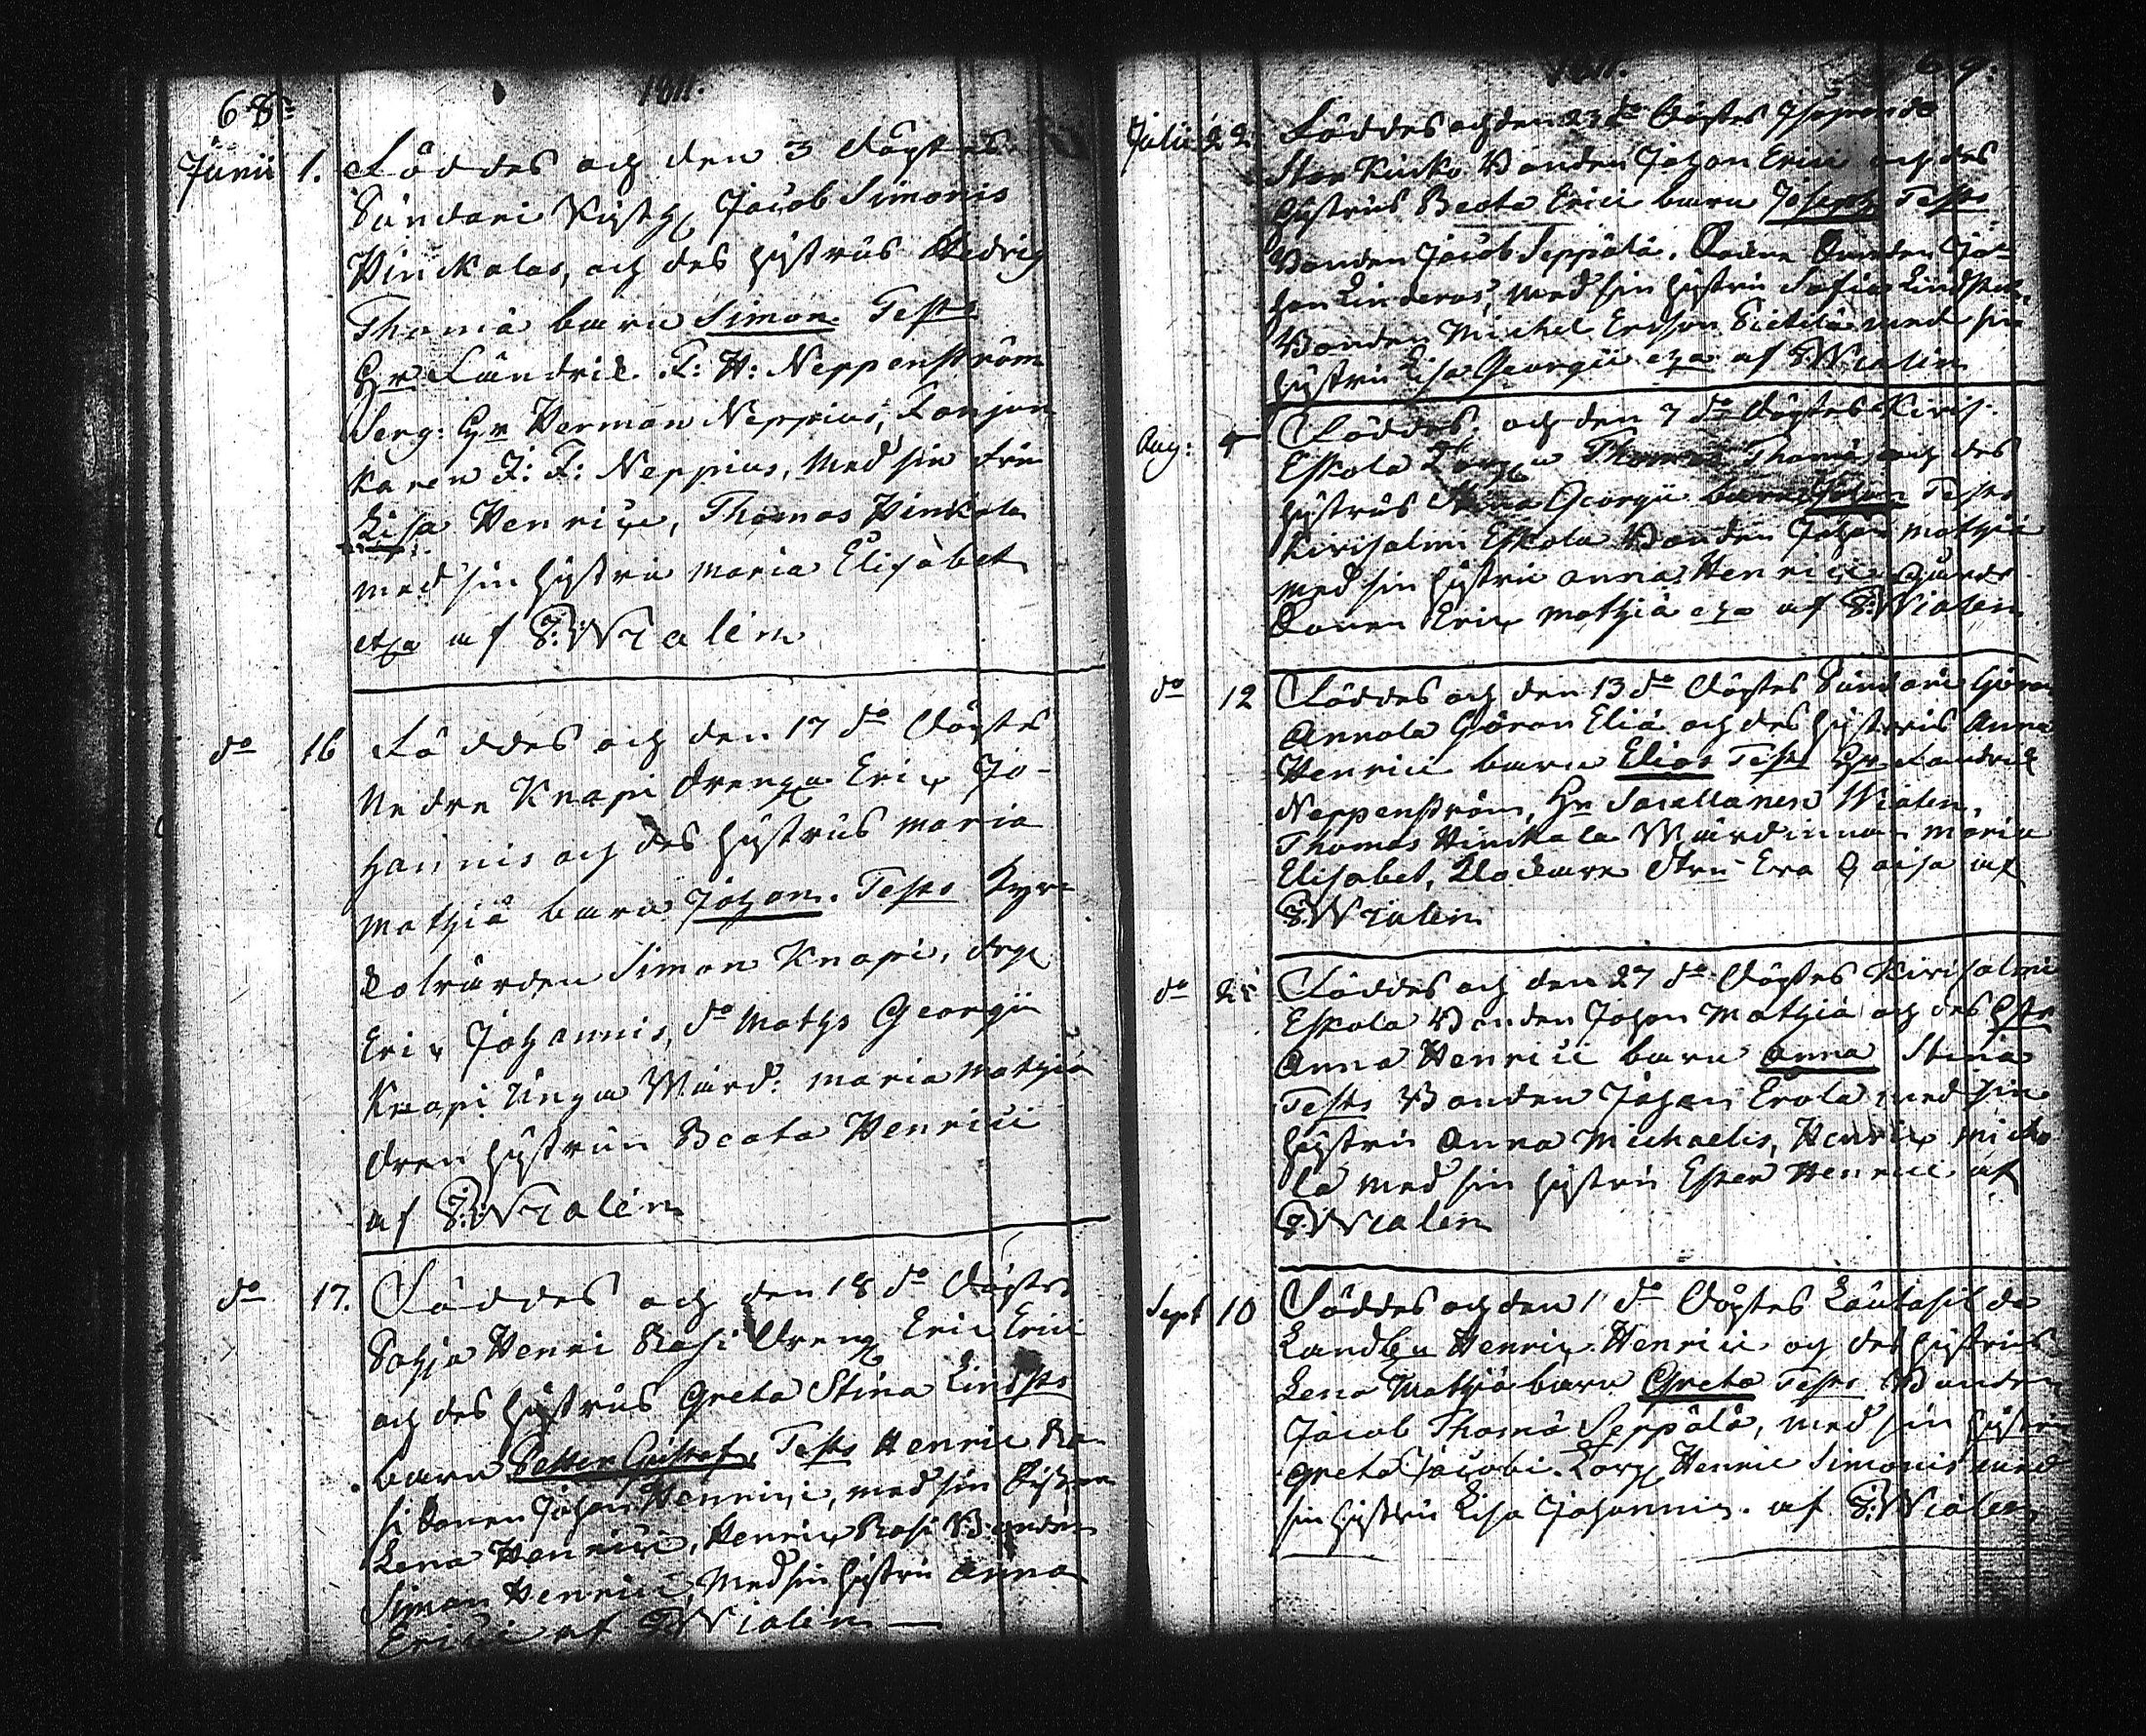 68.
1811.
Junii 1. Föddes och den 3 döptes
Sundari Kistg Jacob Simonis
Hinckalas, och des hustrus Hedvig
Thomæ barn Simon. Testes
Hr Fändrik F: H: Neppenström
Serg: Hr Herman Neppius, Fanjun
karen F: F: Neppius, med sin fru
Lisa Henrici, Thomas Hinckala
med sin hustru Maria Elisabet
etc af J: Wialén
do 16 Föddes och den 17 do döptes
Nedre Knapi drengs Eric Jo-
hannis och des hustrus Maria
Mathiæ barn Johan. Testes Kyr-
kolvärden Simon Knapi, drg
Eric Johannis, do Maths Georgii
Knapi Unga Wärd: Maria Mathiæ
dren hustrun Beata Henrici
af J: Wialén
do 17. Föddes och den 18 do döptes
Henri Rasi Dreng Eric Erici
och des hustrus Greta Stina Linds
barn Petter Gustaf, Testes Henric Ra-
si Sonen Johan Henrici, med sin Syster
Lena Henrici, Henric Rasi Bonden
Simon Henrici, Med sin hustru Anna
Erici af J: Wialén
1811.
69.
Julii 22 Föddes och den 23 do döptes
Stor Bonden Johan Erici och des
hustrus Beata Erici barn Joseph Testes
Bonden Jacob Seppälä. Bonden Jo-
han Linderos, med sin hustru Sofia
Bonden Michel Ersson Pietilä med sin
hustru Lisa Georgii etc af J: Wialén
Aug: 4 Föddes och den 7 do döptes Kiris-
Eskola Torp Thomas Thomæ och des
hustrus Stina Georgii barn Johan Testes
Kirisalmi Eskola Bonden Johan Mathiæ
med sin hustru Anna Henrici
Sonen Eric Mathiæ etc af J: Wialén
do 12 Föddes och den 13 do döptes Sundari
Annola Göran Eliæ och des hustrus Anna
Henrici barn Elias Testes Hr Fendrik
Neppenström, Hr Sacellanen Wialen,
Thomas Hinckala Wärdinnan Maria
Elisabet, Klockare Eva Caisa af
J: Wialén
do 25 Föddes och den 27 do döptes Kirisalmi
Eskola Bonden Johan Mathiæ och des hstr
Anna Henrici barn Anna Stina
Testes Bonden Johan Erola med sin
hustru Anna Michaelis, Henric Micko
la med sin hustru Ester Henrici af
J: Wialén
Sept 10 Föddes och den 11 do döptes
Landb Henric Henrici og des hustrus
Lena Mathiæ barn Greta Testes Bonden
Jacob Thomæ Seppälä, med sin hustru
Greta Jacobi. Torp Henric Simonis med
sin hustru Lisa Johannis. af J: Wialén